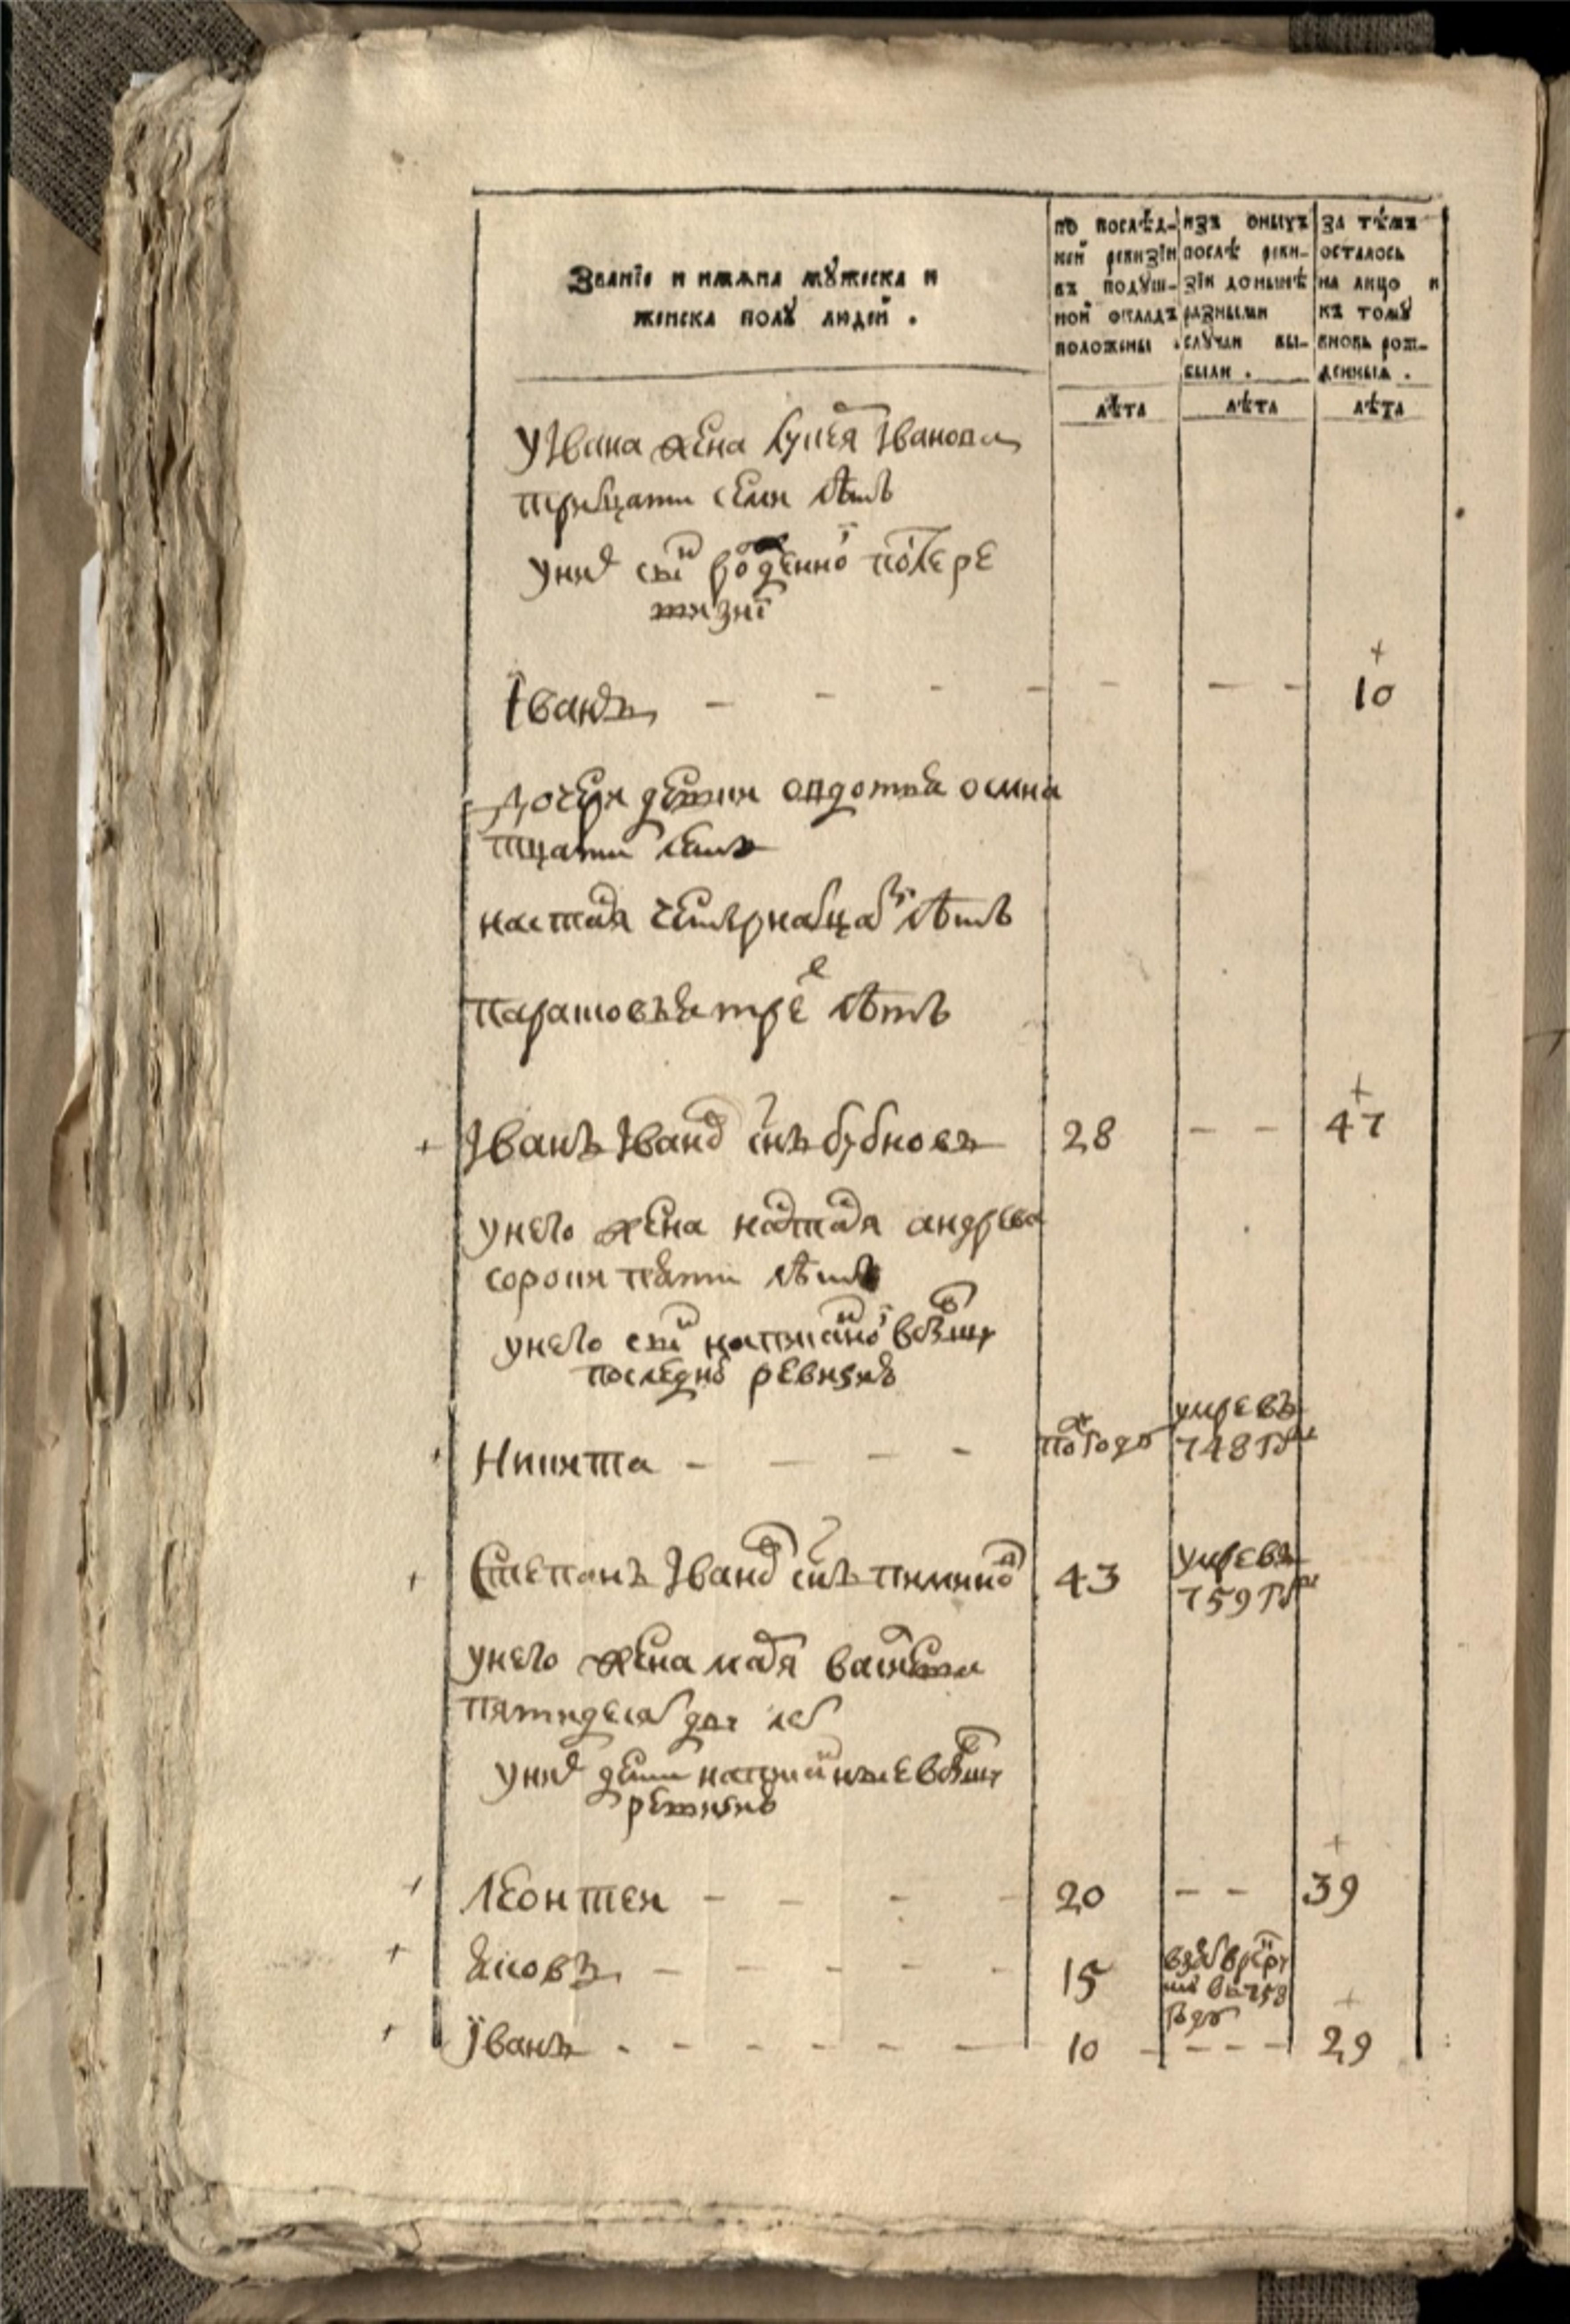 Званїе и имяна мꙋжеска и
женска полꙋ людей .
по послѣд-
ней ревизїи
въ подуш-
ной окладъ
положены .
изъ оныхъ
послѣ реви-
зїи донынѣ
разными
случаи вы-
были .
за тѣмъ
осталось
на лицо и
къ томꙋ
вновь рож-
денныя .
лѣта
лѣта
лѣта
У Iвана жена Iванова
тритцати семи лѣтъ
у них снъ рожденной после ре
визиї
Їванъ - - - - - - - 10
дочери девки овдотья осмна
тцати летъ
настася четырнатцат лѣтъ
парасковья трех лѣтъ
Iванъ Iванов снъ бубновъ 28 - - 47
у него жена настася андреева
сорока пяти лѣтъ
у него снъ написаной в бывшую
последную ревизию
Никита - - - - полгода умре въ
748 году
Степанъ Iванов снъ пимино 43 умре въ
759 году
у него жена васильева
пятидесят дву лет
у них дети написанные в бывшую
ревизию
Леонтеи - - - - 20 - - 39
Яковъ - - - - - 15 взят в рекруты
въ 758
году
Їванъ - - - - - - 10 - - - - 29